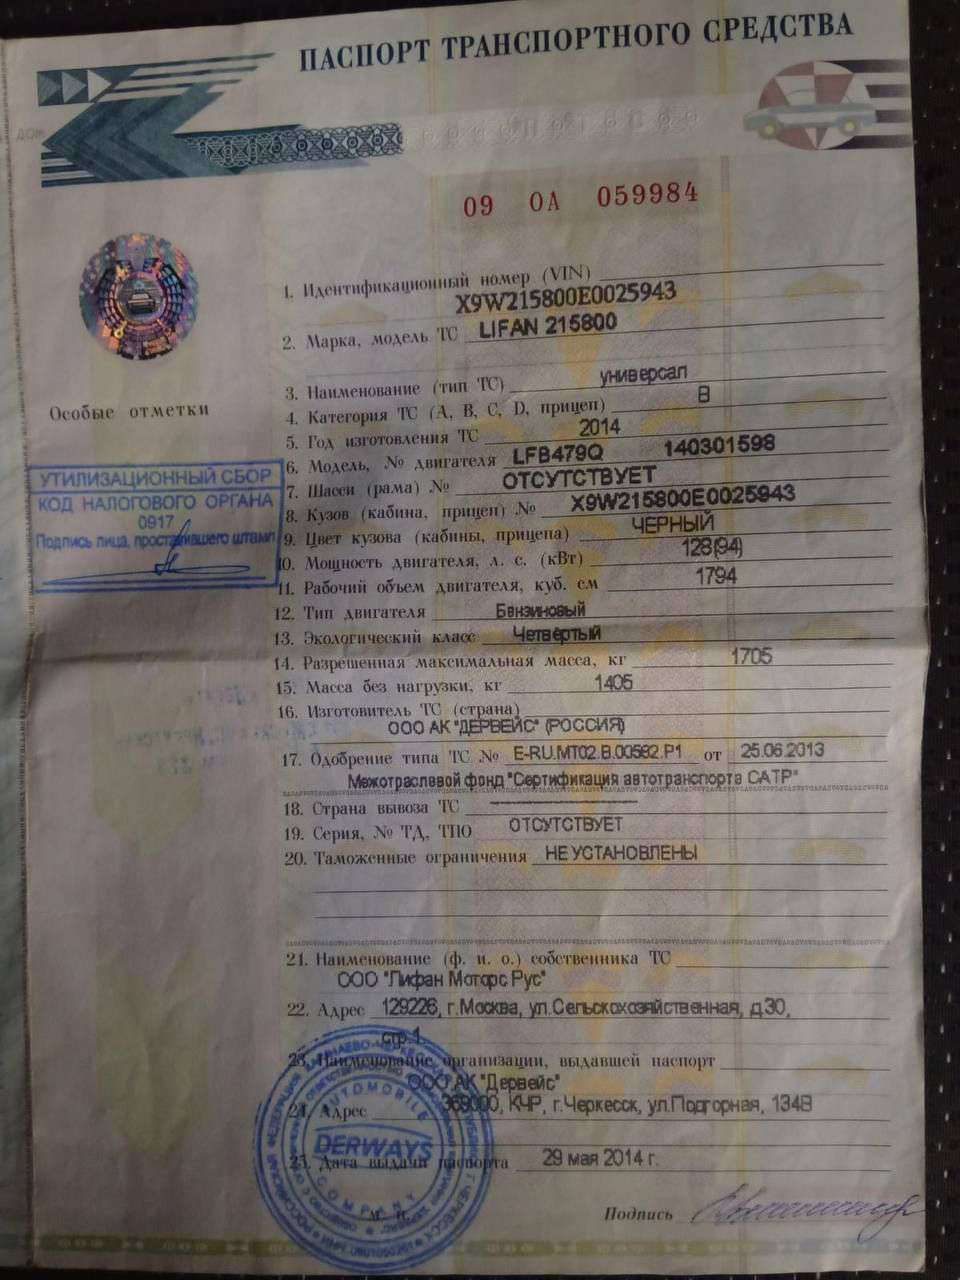 ПАСПОРТ ТРАНСПОРТНОГО СРЕДСТВА
09 ОА 059984
1. Идентификационный номер (VIN)
X9W215800E0025943
2. Марка, модель ТС LIFAN 215800
3. Наименование (тип ТС) универсал
4. Категория ТС (А, В, С, D, прицеп) В
5. Год изготовления ТС 2014
6. Модель, № двигателя LFB479Q 140301598
7. Шасси (рама) № ОТСУТСТВУЕТ
8. Кузов (кабина, прицеп) № X9W215800E0025943
9. Цвет кузова (кабины, прицепа) ЧЕРНЫЙ
10. Мощность двигателя, л. с. (кВт) 128(94)
11. Рабочий объем двигателя, куб. см 1794
12. Тип двигателя Бензиновый
13. Экологический класс Четвёртый
14. Разрешенная максимальная масса, кг 1705
15. Масса без нагрузки, кг 1405
16. Изготовитель ТС (страна)
ООО АК "ДЕРВЕЙС" (РОССИЯ)
17. Одобрение типа ТС № E-RU.MT02.B.00582.P1 от 25.06.2013
Межотраслевой фонд "Сертификация автотранспорта САТР"
18. Страна вывоза ТС
19. Серия, № ТД, ТПО ОТСУТСТВУЕТ
20. Таможенные ограничения НЕ УСТАНОВЛЕНЫ
21. Наименование (ф. и. о.) собственника ТС
ООО "Лифан Моторс Рус"
22. Адрес 129226, г.Москва, ул.Сельскохозяйственная, д.30,
стр.1
23. Наименование организации, выдавшей паспорт
ООО АК "Дервейс"
24. Адрес 369000, КЧР, г.Черкесск, ул.Подгорная, 134В
25. Дата выдачи паспорта 29 мая 2014 г.
М. П.
Подпись
Особые отметки
УТИЛИЗАЦИОННЫЙ СБОР
КОД НАЛОГОВОГО ОРГАНА
0917
Подпись лица, проставившего штамп
AUTOMOBILE
DERWAYS
COMPANY